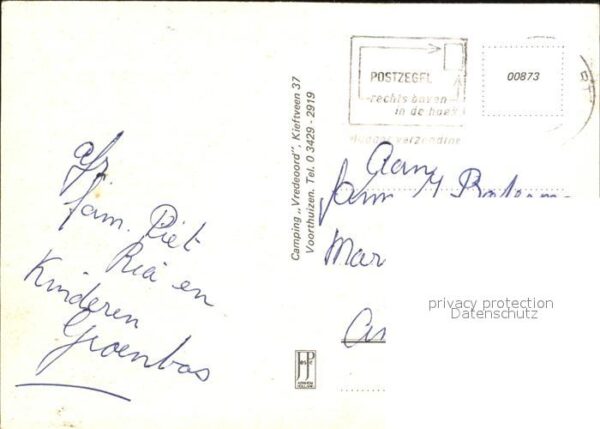 afz
fam. Piet
Ria en
Kinderen
Groenbos
Camping „Vredeoord", Kieftveen 37
Voorthuizen. Tel. 0 3429 - 2919
POSTZEGEL
rechts boven
in de hoek
verzending
00873
Aan
fam
Mar
privacy protection
Datenschutz
JosPé